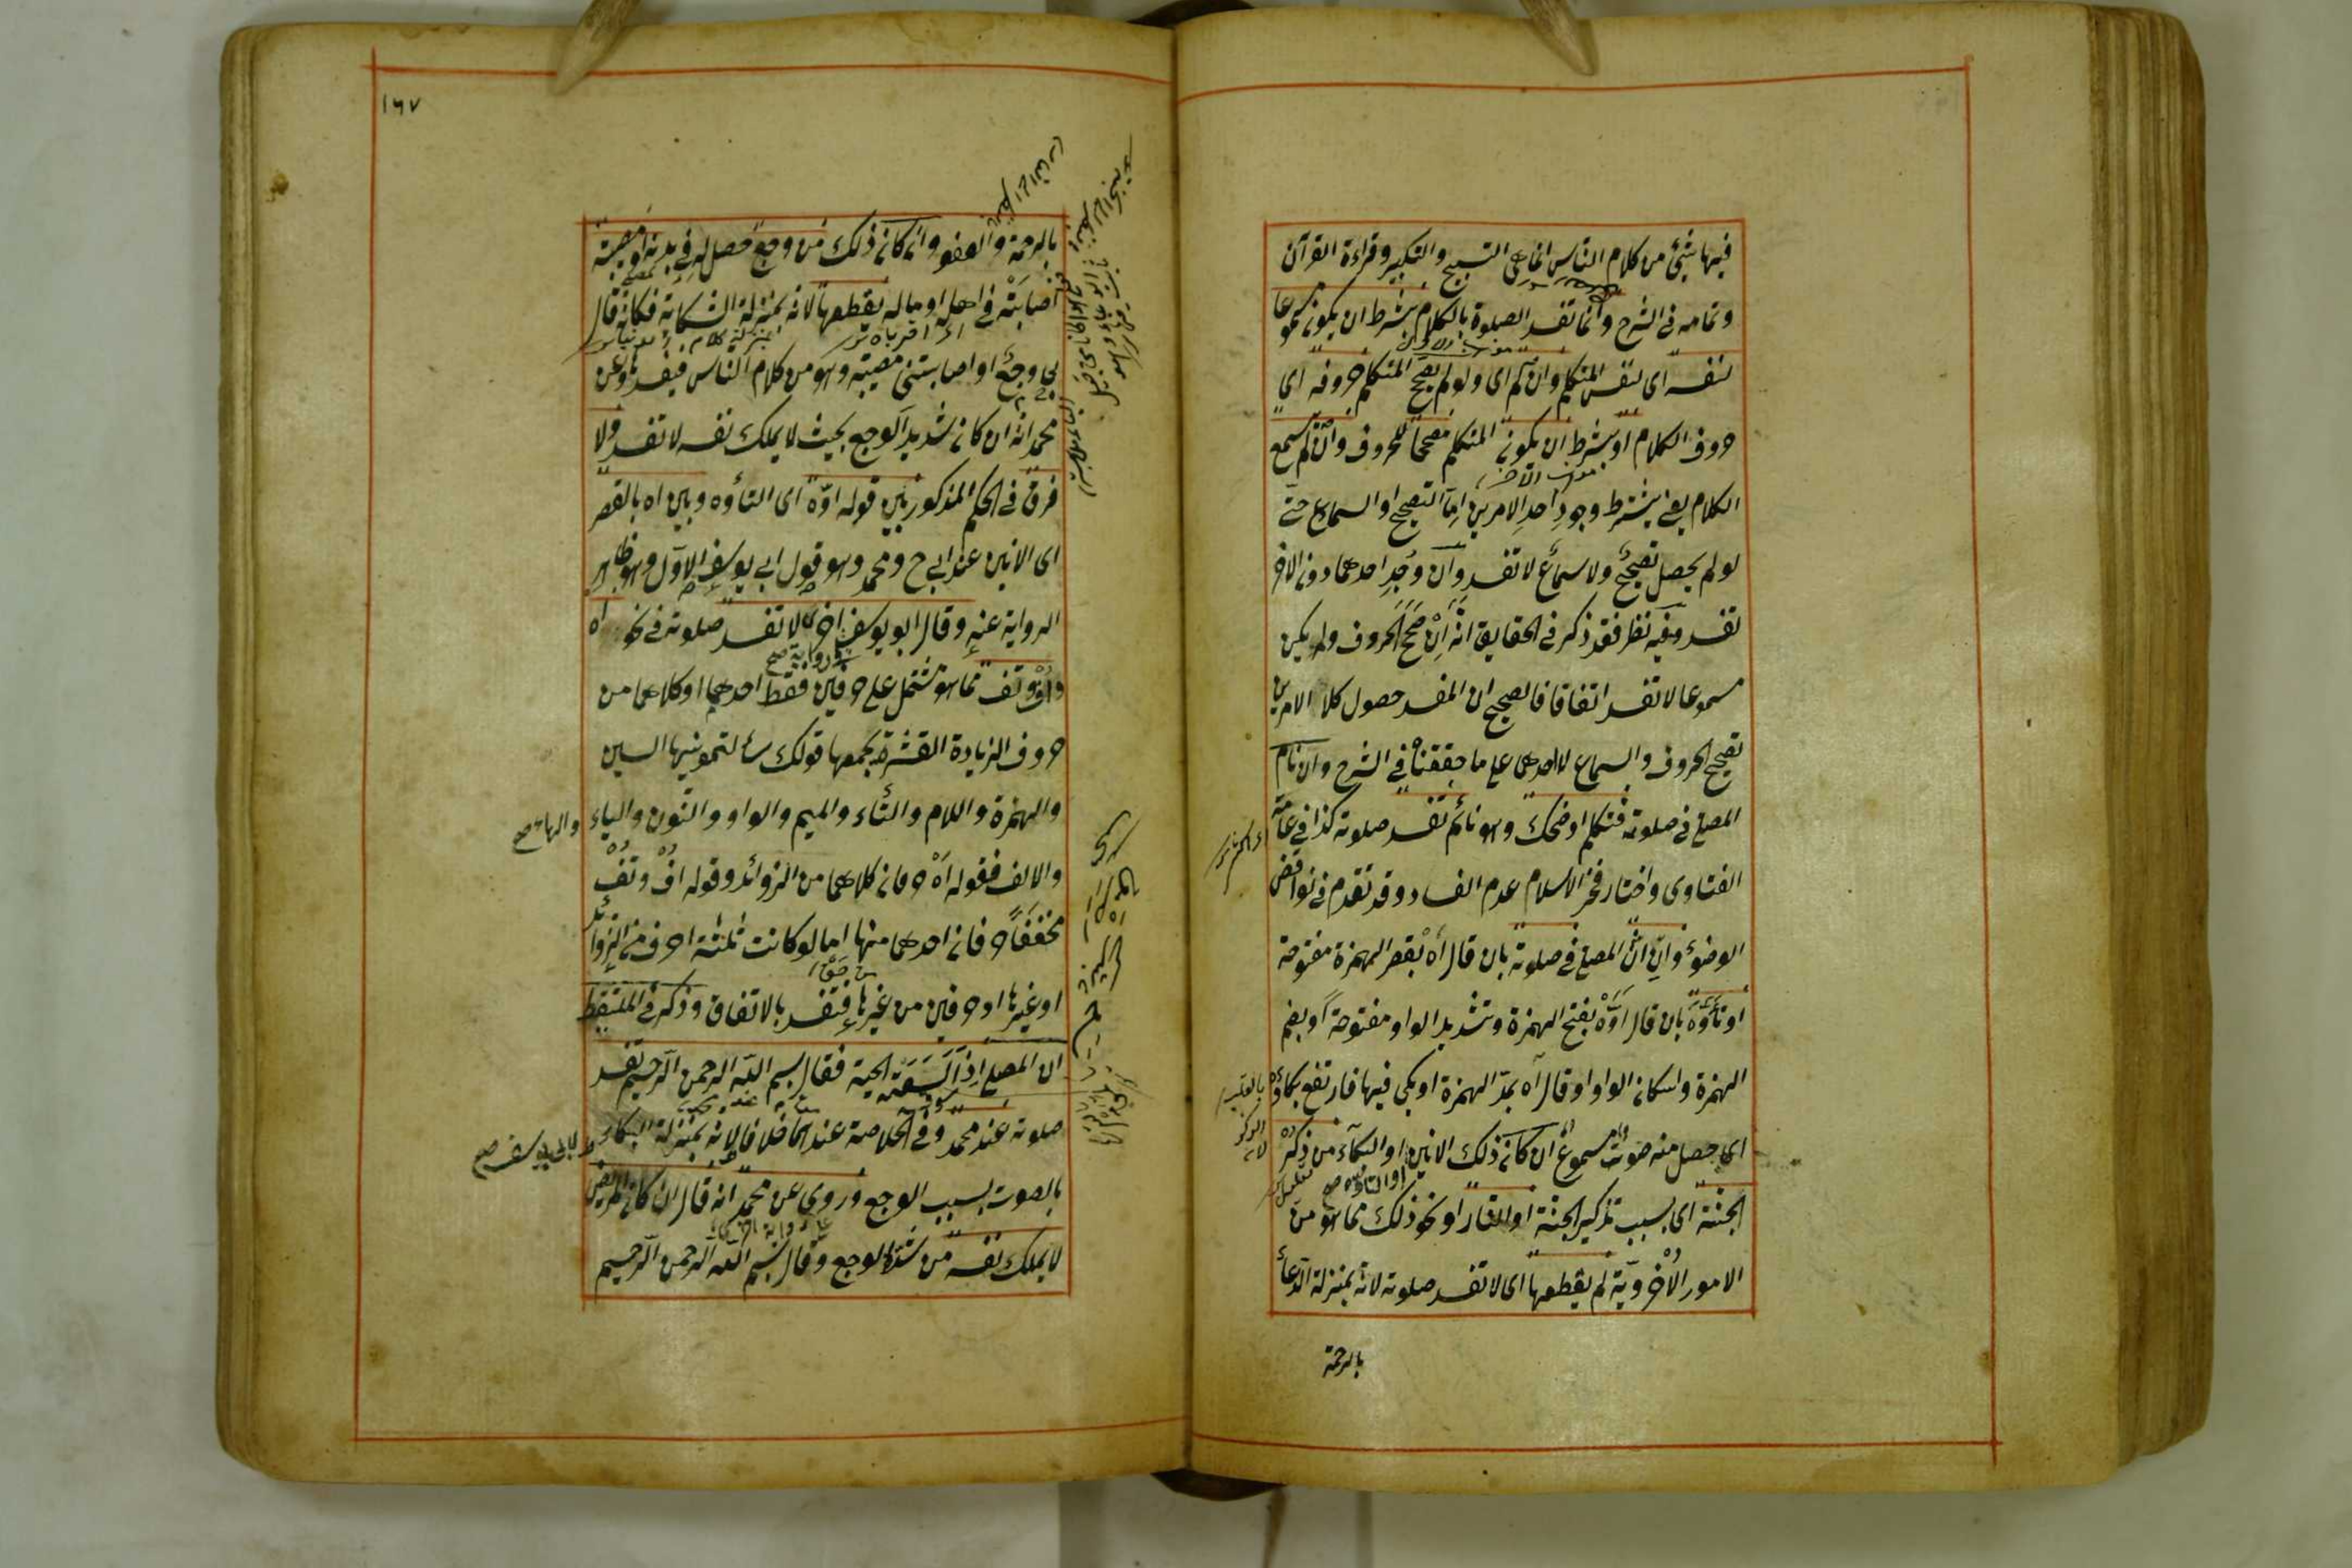 فيها شئ من كلام الناس انما هى التسبيح والتكبير وقراءة القرآن
وتمامه فى الشرح وانما تفسد الصلوة بالكلام بشرط ان يكون مسموعا
لنفسه اى لنفس المتكلم وان لم اى ولو لم يصحح المتكلم حروفه اى
حروف الكلام او بشرط ان يكون المتكلم مصححا للحروف وان لم يسمع
الكلام يعنى يشترط وجود احد الامرين اما التصحيح او السماع حتى
لو لم يحصل تصحيح ولا سماع لا تفسد وان وجد احدهما دون الاخر
تفسد وفيه نظر فقد ذكر فى الحقايق انه ان صحح الحروف ولم يكن
مسموعا لا تفسد اتفاقا فالصحيح ان المفسد حصول كلا الامرين
تصحيح الحروف والسماع لا احدهما على ما حققناه فى الشرح وان نام
المصلى فى صلوته فتكلم او ضحك وهو نائم تفسد صلوته كذا فى عامة
الفتاوى واختار فخر الاسلام عدم الفساد وقد تقدم فى نواقض
الوضوء وان انّ المصلى فى صلوته بان قال اَهْ بقصر الهمزة مفتوحة
او تأوّه بان قال اَوَّهْ بفتح الهمزة وتشديد الواو مفتوحة او بضم
الهمزة واسكان الواو او قال آه بمدّ الهمزة او بكى فيها فارتفع بكاؤه
اى حصل منه صوت مسموع ان كان ذلك الانين او البكاء من ذكر
او التأوه صح
الجنة اى بسبب تذكير الجنة او النار او نحو ذلك مما هو من
الامور الاخروية لم يقطعها اى لا تفسد صلوته لانه بمنزلة الدعاء
بالرحمة
١٦٧
بالرحمة والعفو وان كان ذلك من وجع حصل له فى بدنه او مصيبة
اصابته فى اهله او ماله يقطعها لانه بمنزلة الشكاية فكانه قال
بى وجع او اصابتنى مصيبة وهو من كلام الناس فيفسدها وعن
محمد انه ان كان شديد الوجع بحيث لا يملك نفسه لا تفسد ولا
فرق فى الحكم المذكور بين قوله اوّه اى التأوه وبين اه بالقصر
اى الانين عند ابى ح ومحمد وهو قول ابى يوسف الاول وهو ظاهر
الرواية عنه وقال ابو يوسف اخرا لا تفسد صلوته فى نحو اه
فى رواية صح
واف وتف مما هو مشتمل على حرفين فقط احدهما او كلاهما من
حروف الزيادة العشرة يجمعها قولك سألتمونيها السين
والهمزة واللام والتاء والميم والواو والنون والياء
والهاء صح
والالف فقوله اَهْ حرفان كلاهما من الزوائد وقوله اُفْ وتُفْ
مخففا حرفان احدهما منها اما لو كانت ثلثة احرف من الزوائد
او غيرها او حرفين من غيرها فتفسد بالاتفاق وذكر فى الملتقط
ان المصلى اذا لسعته الحية فقال بسم الله الرحمن الرحيم تفسد
صلوته عند محمد وفى الخلاصة عندهما خلافا لانه بمنزلة البكاء
لابى يوسف صح
بالصوت بسبب الوجع وروى عن محمد انه قال ان كان المريض
لا يملك نفسه من شدة الوجع وقال بسم الله الرحمن الرحيم